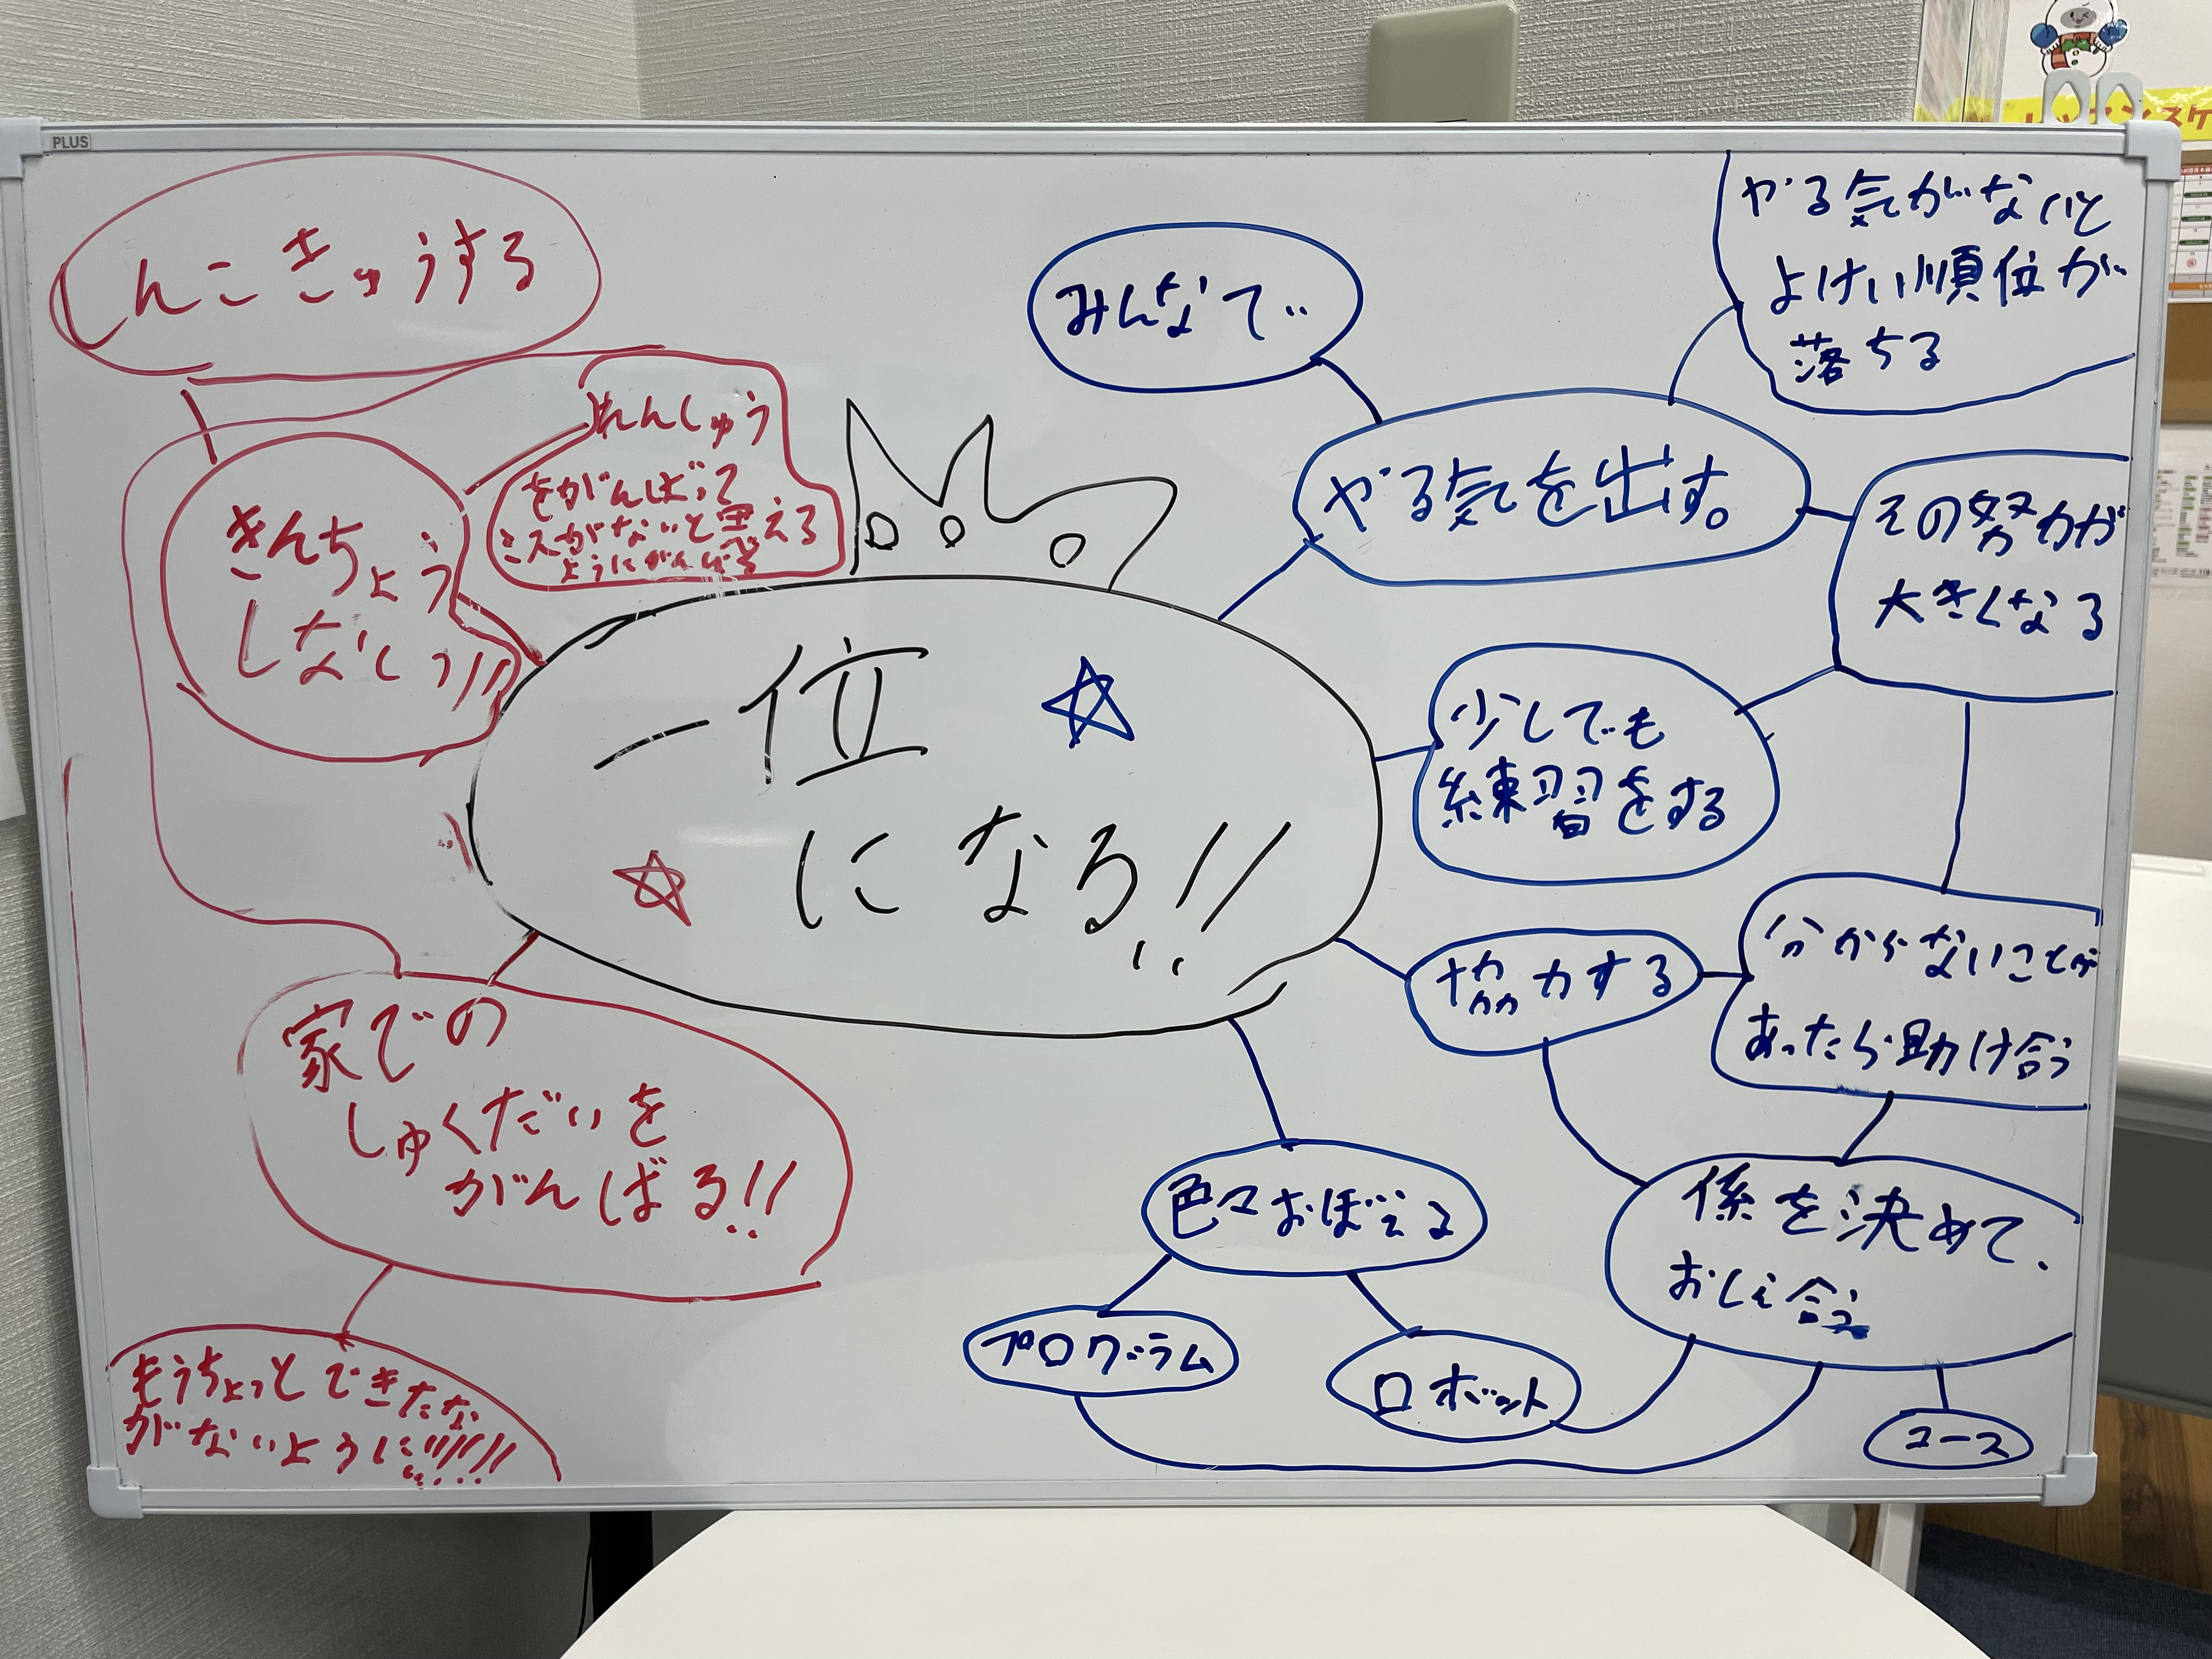 PLUS
しんこきゅうする
れんしゅう
をがんばって
ミスがないと言える
ようにがんばる
きんちょう
しない!!
一位
になる!!
家での
しゅくだいを
がんばる!!
もうちょっとできたな
がないように!!!!!!
みんなで
やる気がないと
よけい順位が
落ちる
やる気を出す。
その努力が
大きくなる
少しでも
練習をする
協力する
分からないことが
あったら助け合う
係を決めて、
おしえ合う
色々おぼえる
プログラム
ロボット
コース